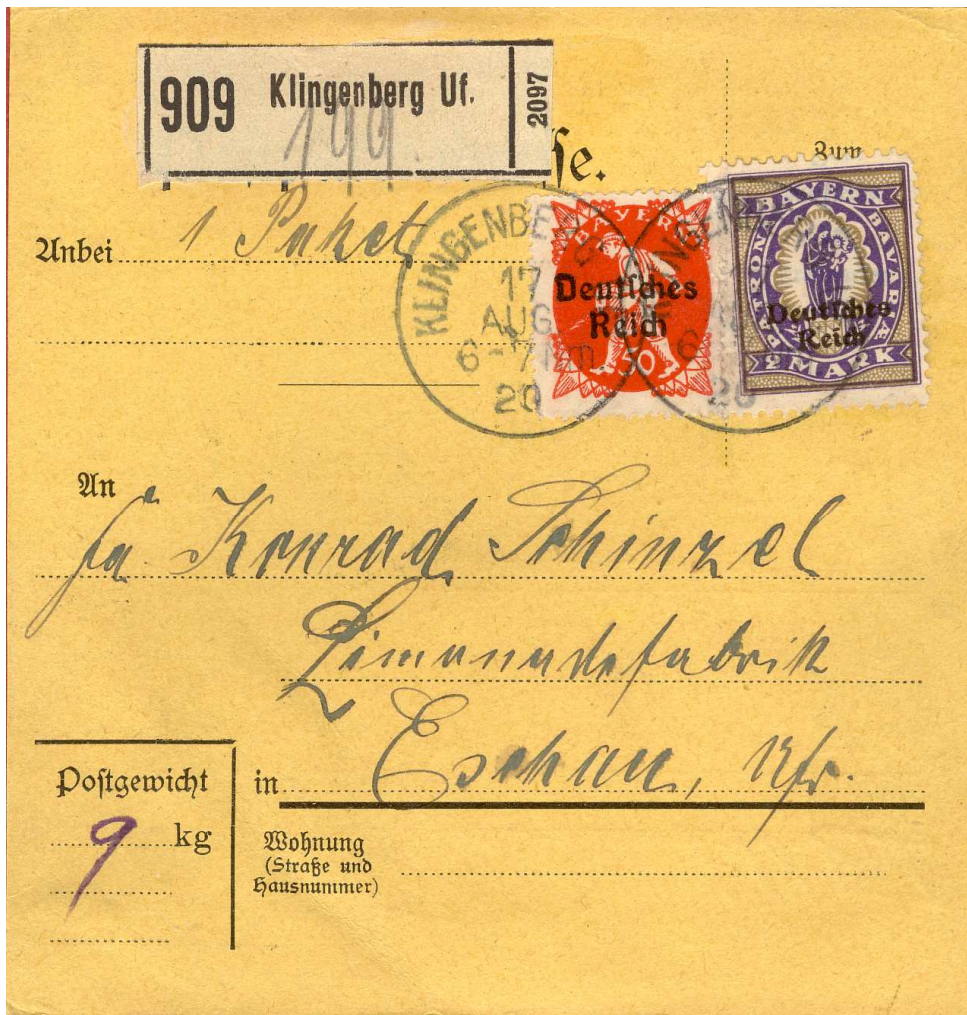 909 Klingenberg Uf. 2097
199.
se.
Zum
Anbei 1 Paket
KLINGENBE
17
AUG
6-7 Nm
20
BAYERN
Deutsches
Reich
50
BAYERN
PATRONA BAVARIÆ
Deutsches
Reich
2 MARK
An
Fa. Konrad Schinzel
Limonadefabrik
in Eschau, Ufr.
Postgewicht
9 kg
Wohnung
(Straße und
Hausnummer)